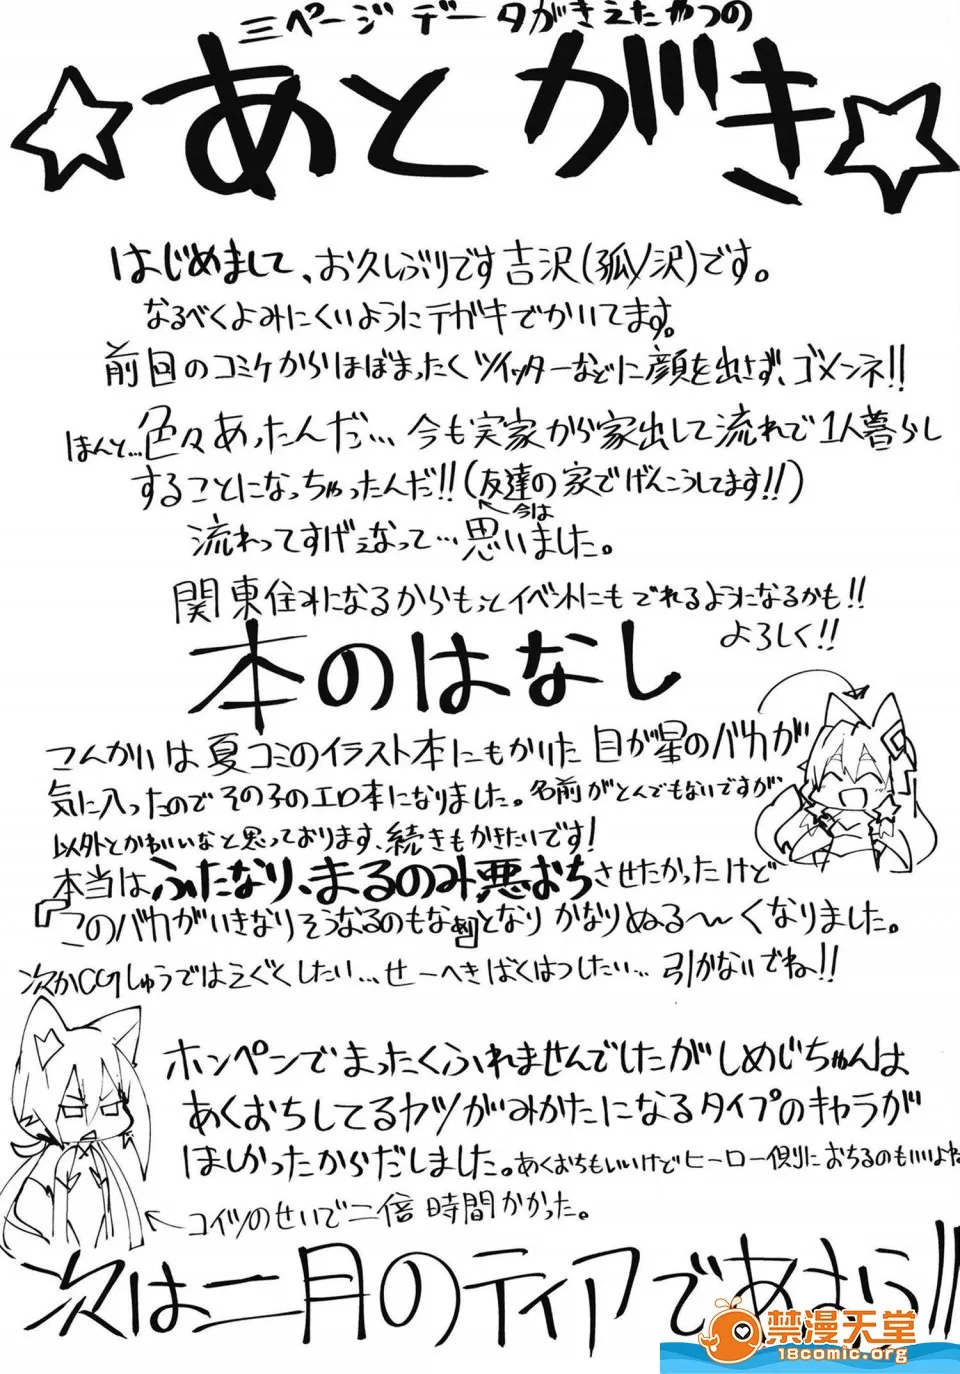 三ページデータがきえたやつの
☆あとがき☆
はじめまして、お久しぶりです吉沢(孤ノ沢)です。
なるべくよみにくいようにテガキでかいてます。
前回のコミケからほぼまったくツイッターなどに顔を出さず、ゴメンネ!!
ほんと…色々あったんだ…今も実家から家出して流れで1人暮らし
することになっちゃったんだ!!(友達の家でげんこうしてます!!)
←今は
流れってすげぇなって…思いました。
関東住みになるからもっとイベントにもでれるようになるかも!!
よろしく!!
本のはなし
こんかいは夏コミのイラスト本にもかいた目が星のバカが
気に入ったのでその子のエロ本になりました。名前がとんでもないですが
以外とかわいいなと思っております、続きもかきたいです!
本当はふたなり、まるのみ、悪おちさせたかったけど
『このバカがいきなりそうなるのもなぁ』となりかなりぬる〜くなりました。
次かCGしゅうではえぐくしたい…せーへきばくはつしたい…引かないでね!!
ホンペンでまったくふれませんでしたがしめじちゃんは
あくおちしてるヤツがみかたになるタイプのキャラが
ほしかったからだしました。あくおちもいいけどヒーロー側におちるのもいいよね
←コイツのせいで二倍時間かかった。
次は二月のティアであおう!!
禁漫天堂
18comic.org